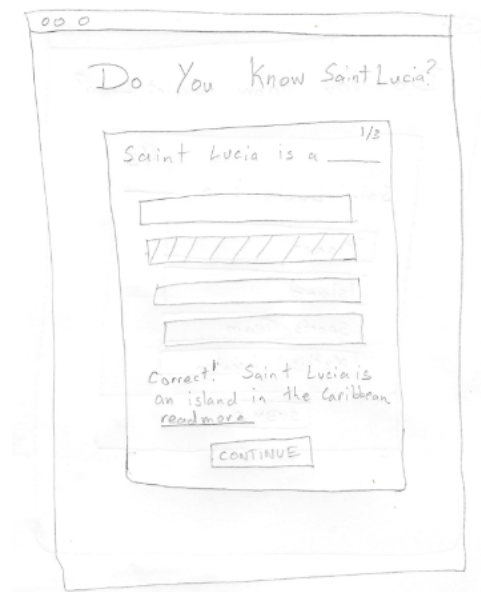 Do You Know Saint Lucia?
1/3
Saint Lucia is a ______
Correct! Saint Lucia is
an island in the Caribbean
read more
CONTINUE